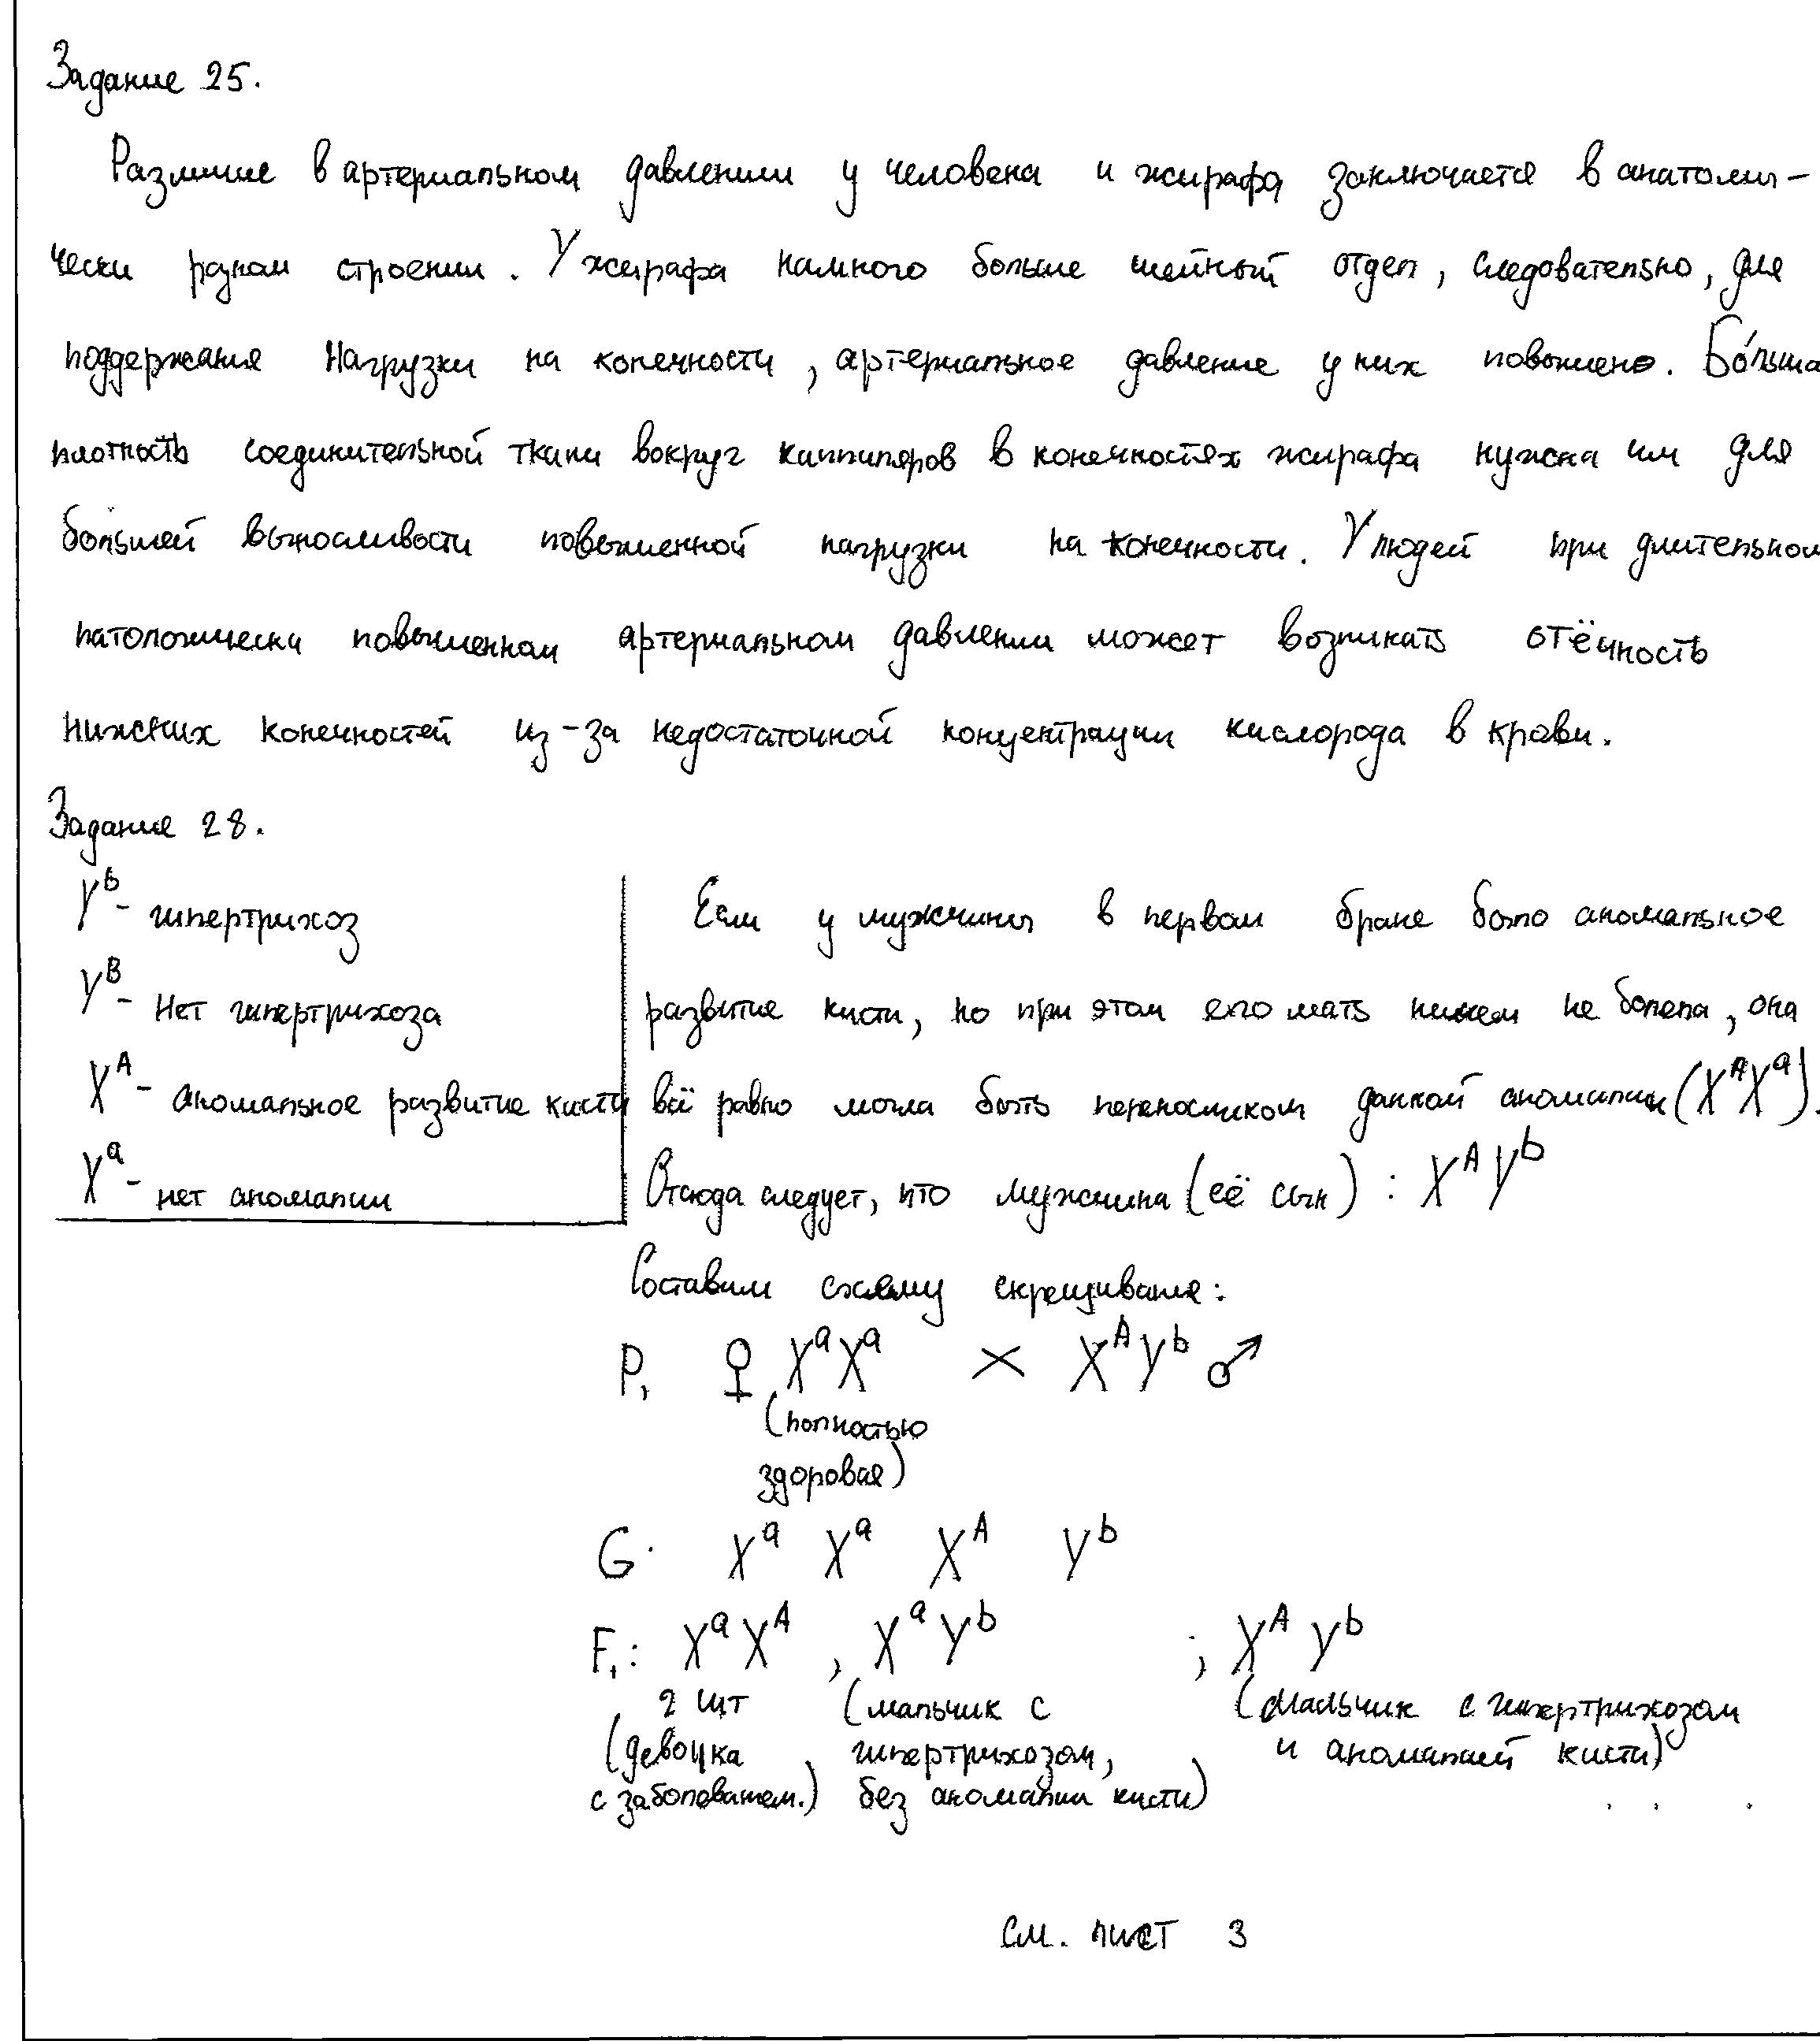 Задание 25.
Различие в артериальном давлении у человека и жирафа заключается в анатоми-
чески разном строении. У жирафа намного больше шейный отдел, следовательно, для
поддержания нагрузки на конечности, артериальное давление у них повышено. Бо́льша
плотность соединительной ткани вокруг капилляров в конечностях жирафа нужна им для
большей выносливости повышенной нагрузки на конечности. У людей при длительном
патологически повышенном артериальном давлении может возникать отёчность
нижних конечностей из-за недостаточной концентрации кислорода в крови.
Задание 28.
Y^b - гипертрихоз
Y^B - Нет гипертрихоза
X^A - аномальное развитие кисти
X^a - нет аномалии
Если у мужчины в первом браке было аномальное
развитие кисти, но при этом его мать ничем не болела, она
всё равно могла быть переносчиком данной аномалии (X^A X^a).
Отсюда следует, что мужчина (её сын) : X^A Y^b
Составим схему скрещивания:
P₁ ♀ X^a X^a × X^A Y^b ♂
(полностью
здоровая)
G: X^a X^a X^A Y^b
F₁: X^a X^A , X^a Y^b ; X^A Y^b
2 шт (мальчик с (мальчик с гипертрихозом
(девочка гипертрихозом, и аномалией кисти)
с заболеванием.) без аномалии кисти)
См. лист 3